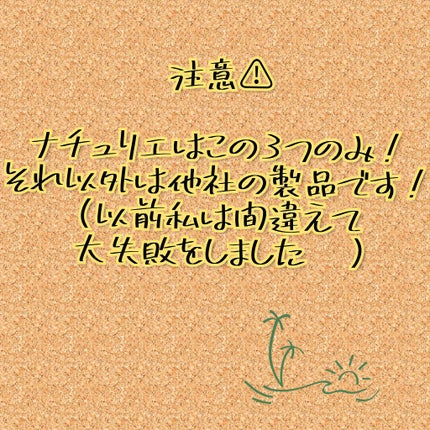 注意⚠
ナチュリエはこの3つのみ！
それ以外は他社の製品です！
(以前私は間違えて
大失敗をしました　)